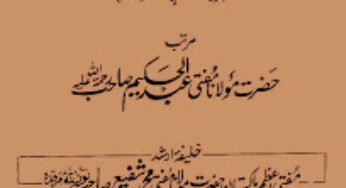 مرتب
حضرت مولانا مفتی عبد الحکیم صاحب رحمۃ اللہ علیہ
خلیفۂ ارشد
مفتی اعظم پاکستان حضرت مولانا مفتی محمد شفیع صاحب